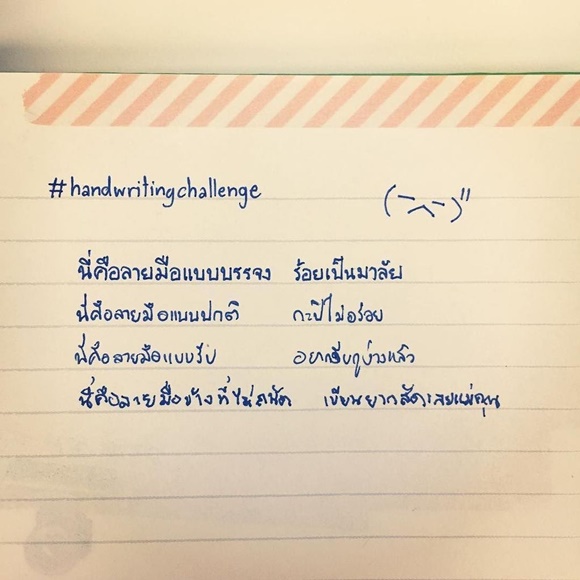 #handwritingchallenge
นี่คือลายมือแบบบรรจง ร้อยเป็นมาลัย
นี่คือลายมือแบบปกติ กะปิไม่อร่อย
นี่คือลายมือแบบรีบ อยาก บ้างแล้ว
นี่คือลายมือข้างที่ไม่ถนัด เขียนยากสัดเลยแม่คุณ